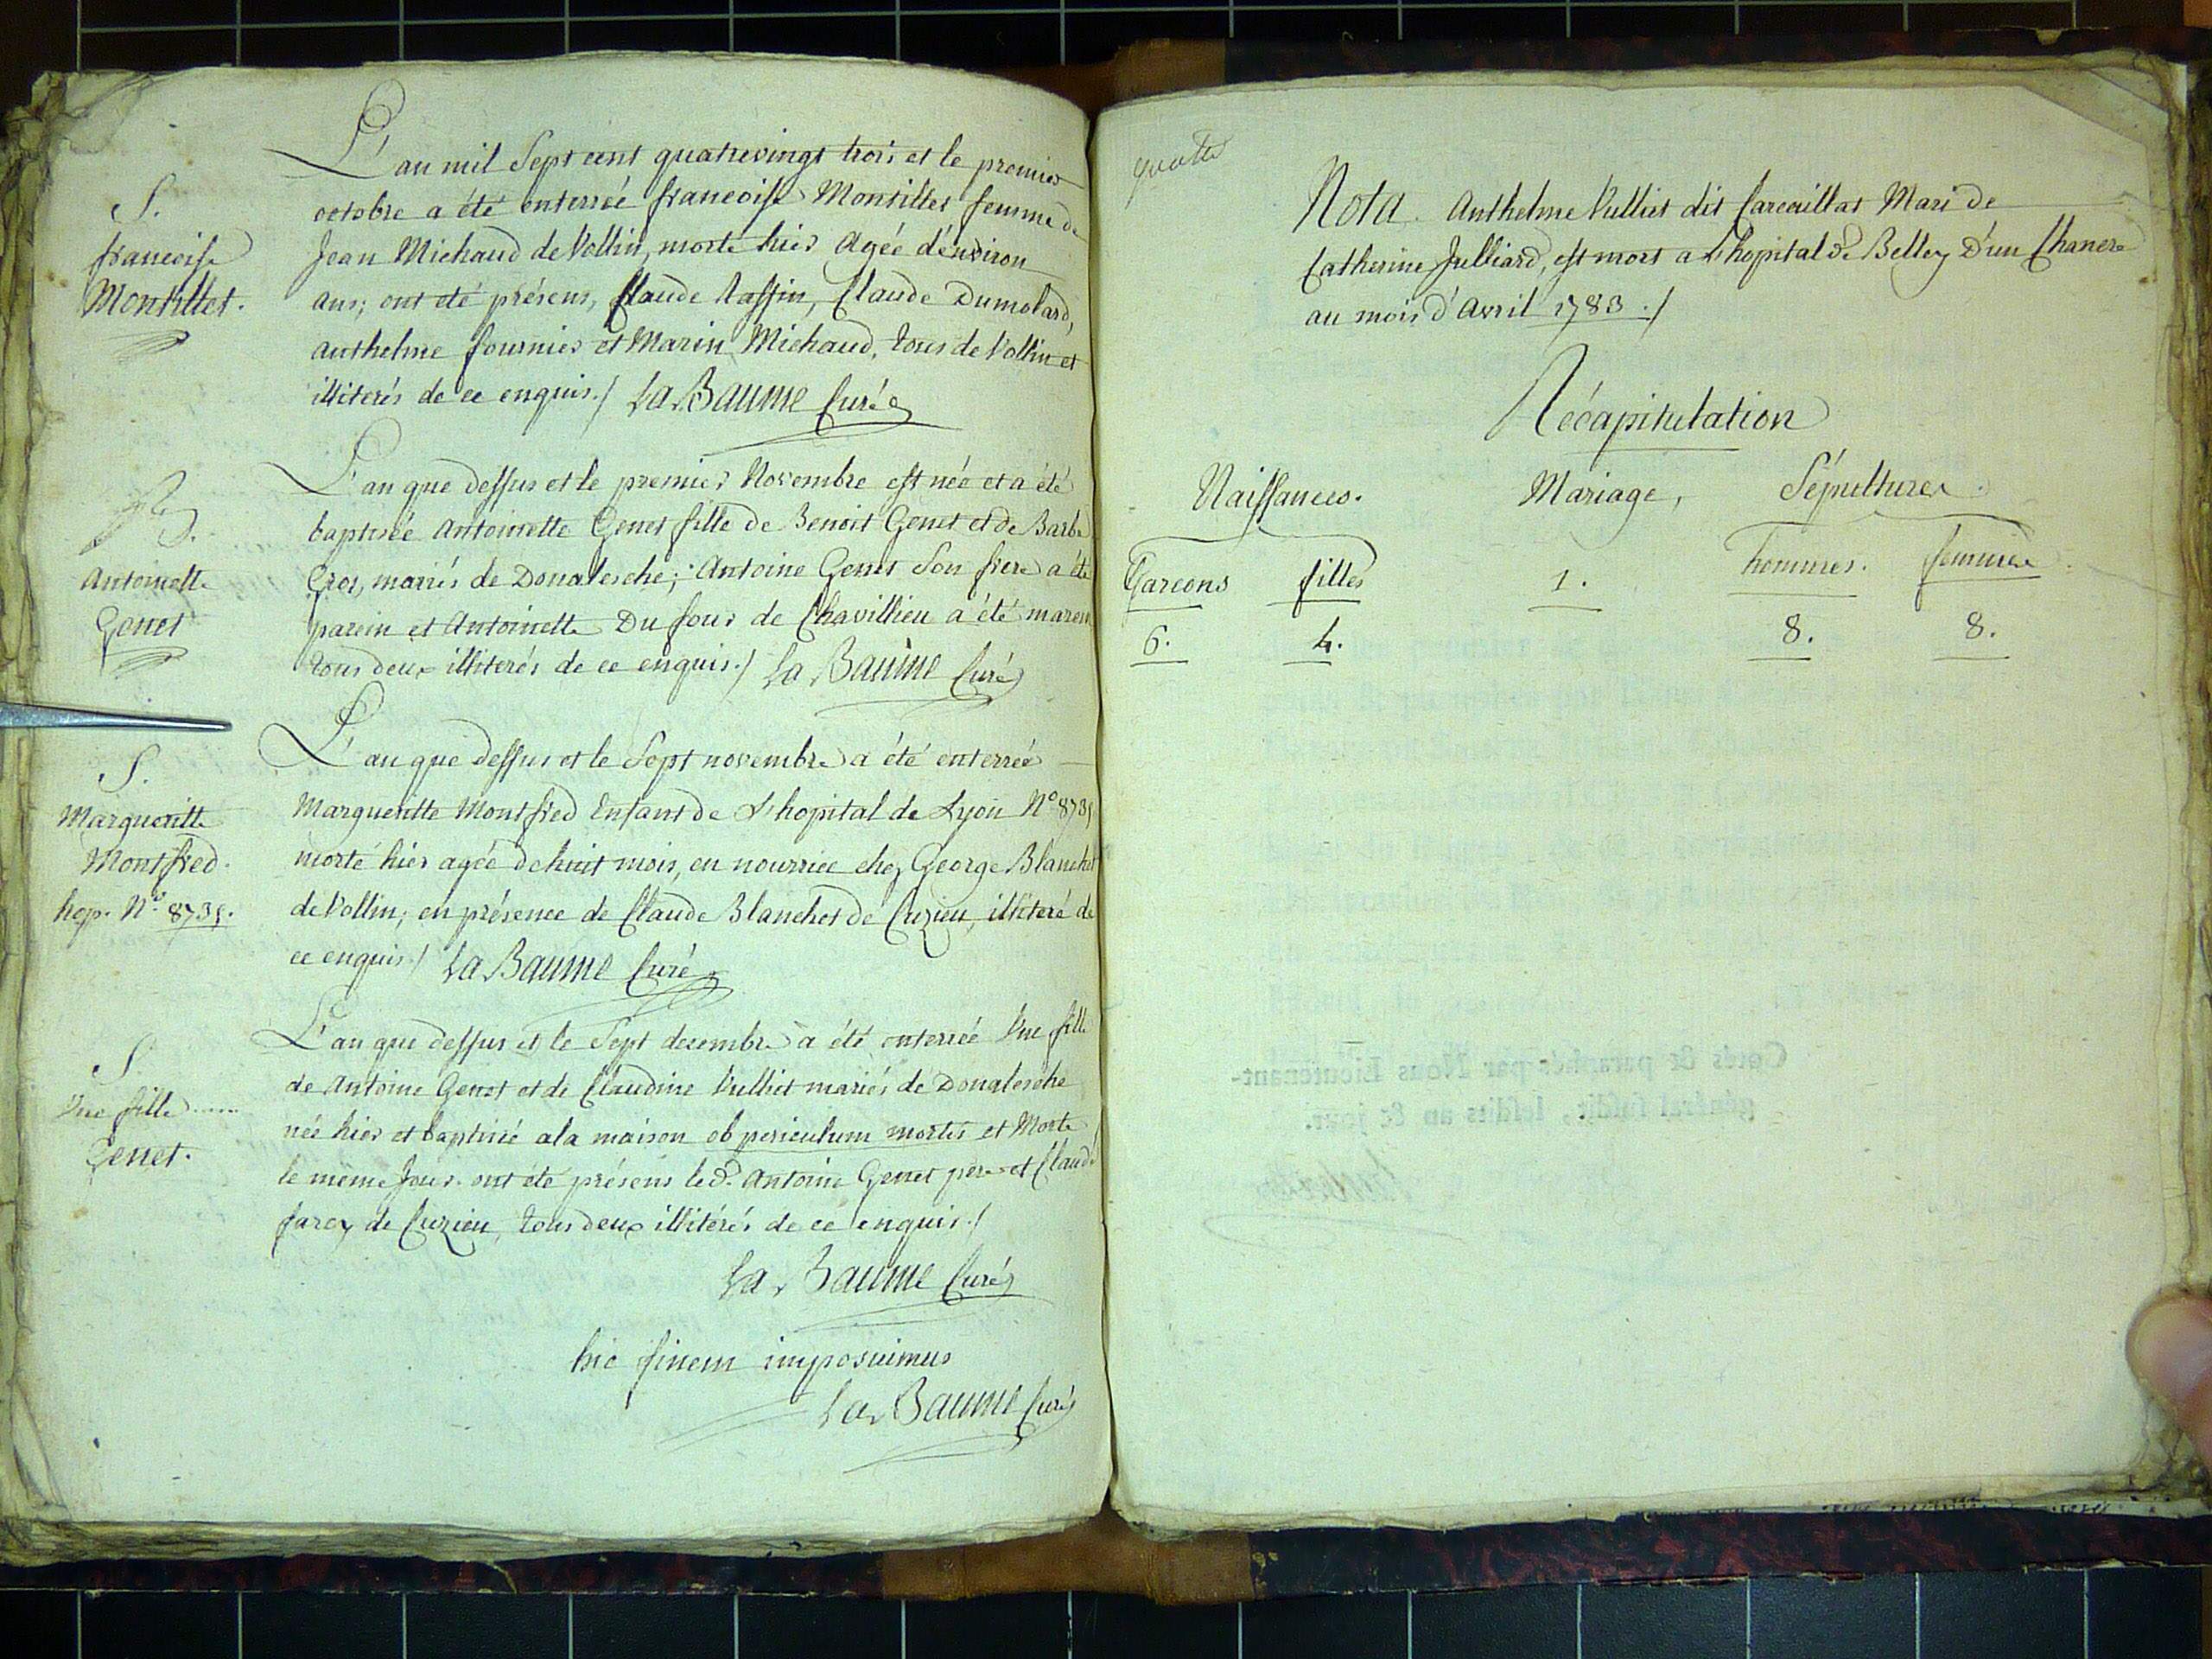 L'an mil Sept cent quatrevingt trois et le premier
octobre a été enterreé francoise Montillet femme de
Jean Michaud de Vollin, morte hier Agée d'environ
ans; ont été présens, Claude Raffin, Claude Dumolard,
anthelme fournier et Marin Michaud, tous de Vollin et
illiterés de ce enquis./ La Baume Curé
S.
francoise
Montillet.
L'an que dessus et le premier Novembre est née et a été
baptisée Antoinette Genet fille de Benoit Genet et de Barbe
Cros, mariés de Donalesche; Antoine Genet Son frere a été
parein et Antoinette Du four de Chavillieu a été marein
tous deux illiterés de ce enquis./ La Baume Curé
Antoinette
Genet
L'an que dessus et le Sept novembre a été enterreé
Margueritte Montfred Enfant de L'hopital de Lyon N° 8735
morte hier agée de huit mois, en nourrice chez George Blanchet
de Vollin; en présence de Claude Blanchet de Cuzieu, illiteré de
ce enquis./ La Baume Curé
S.
Margueritte
Montfred.
hop. N° 8735.
L'an que dessus et le Sept decembre a été enterreé Une fille
de Antoine Genet et de Claudine Vulliet mariés de Donalesche
née hier et baptisée a la maison ob periculum mortis et Morte
le même Jour. ont été présens led. Antoine Genet pere et Claude
farcy de Cuzieu, tous deux illitérés de ce enquis./
La Baume Curé
S.
Une fille ......
Genet.
hic finem imposuimus
La Baume Curé
quatre
Nota. Anthelme Vulliet dit Carcaillat Mari de
Catherine Julliard, est mort a L'hopital de Belley D'un Chancre
au mois d'Avril 1783./
Récapitulation
Naissances. Mariage, Sépultures.
Garcons filles 1. hommes. femmes.
6. 4. 8. 8.
Cotés & paraphés par Nous Lieutenant-
général susdit, lesdits an & jour.